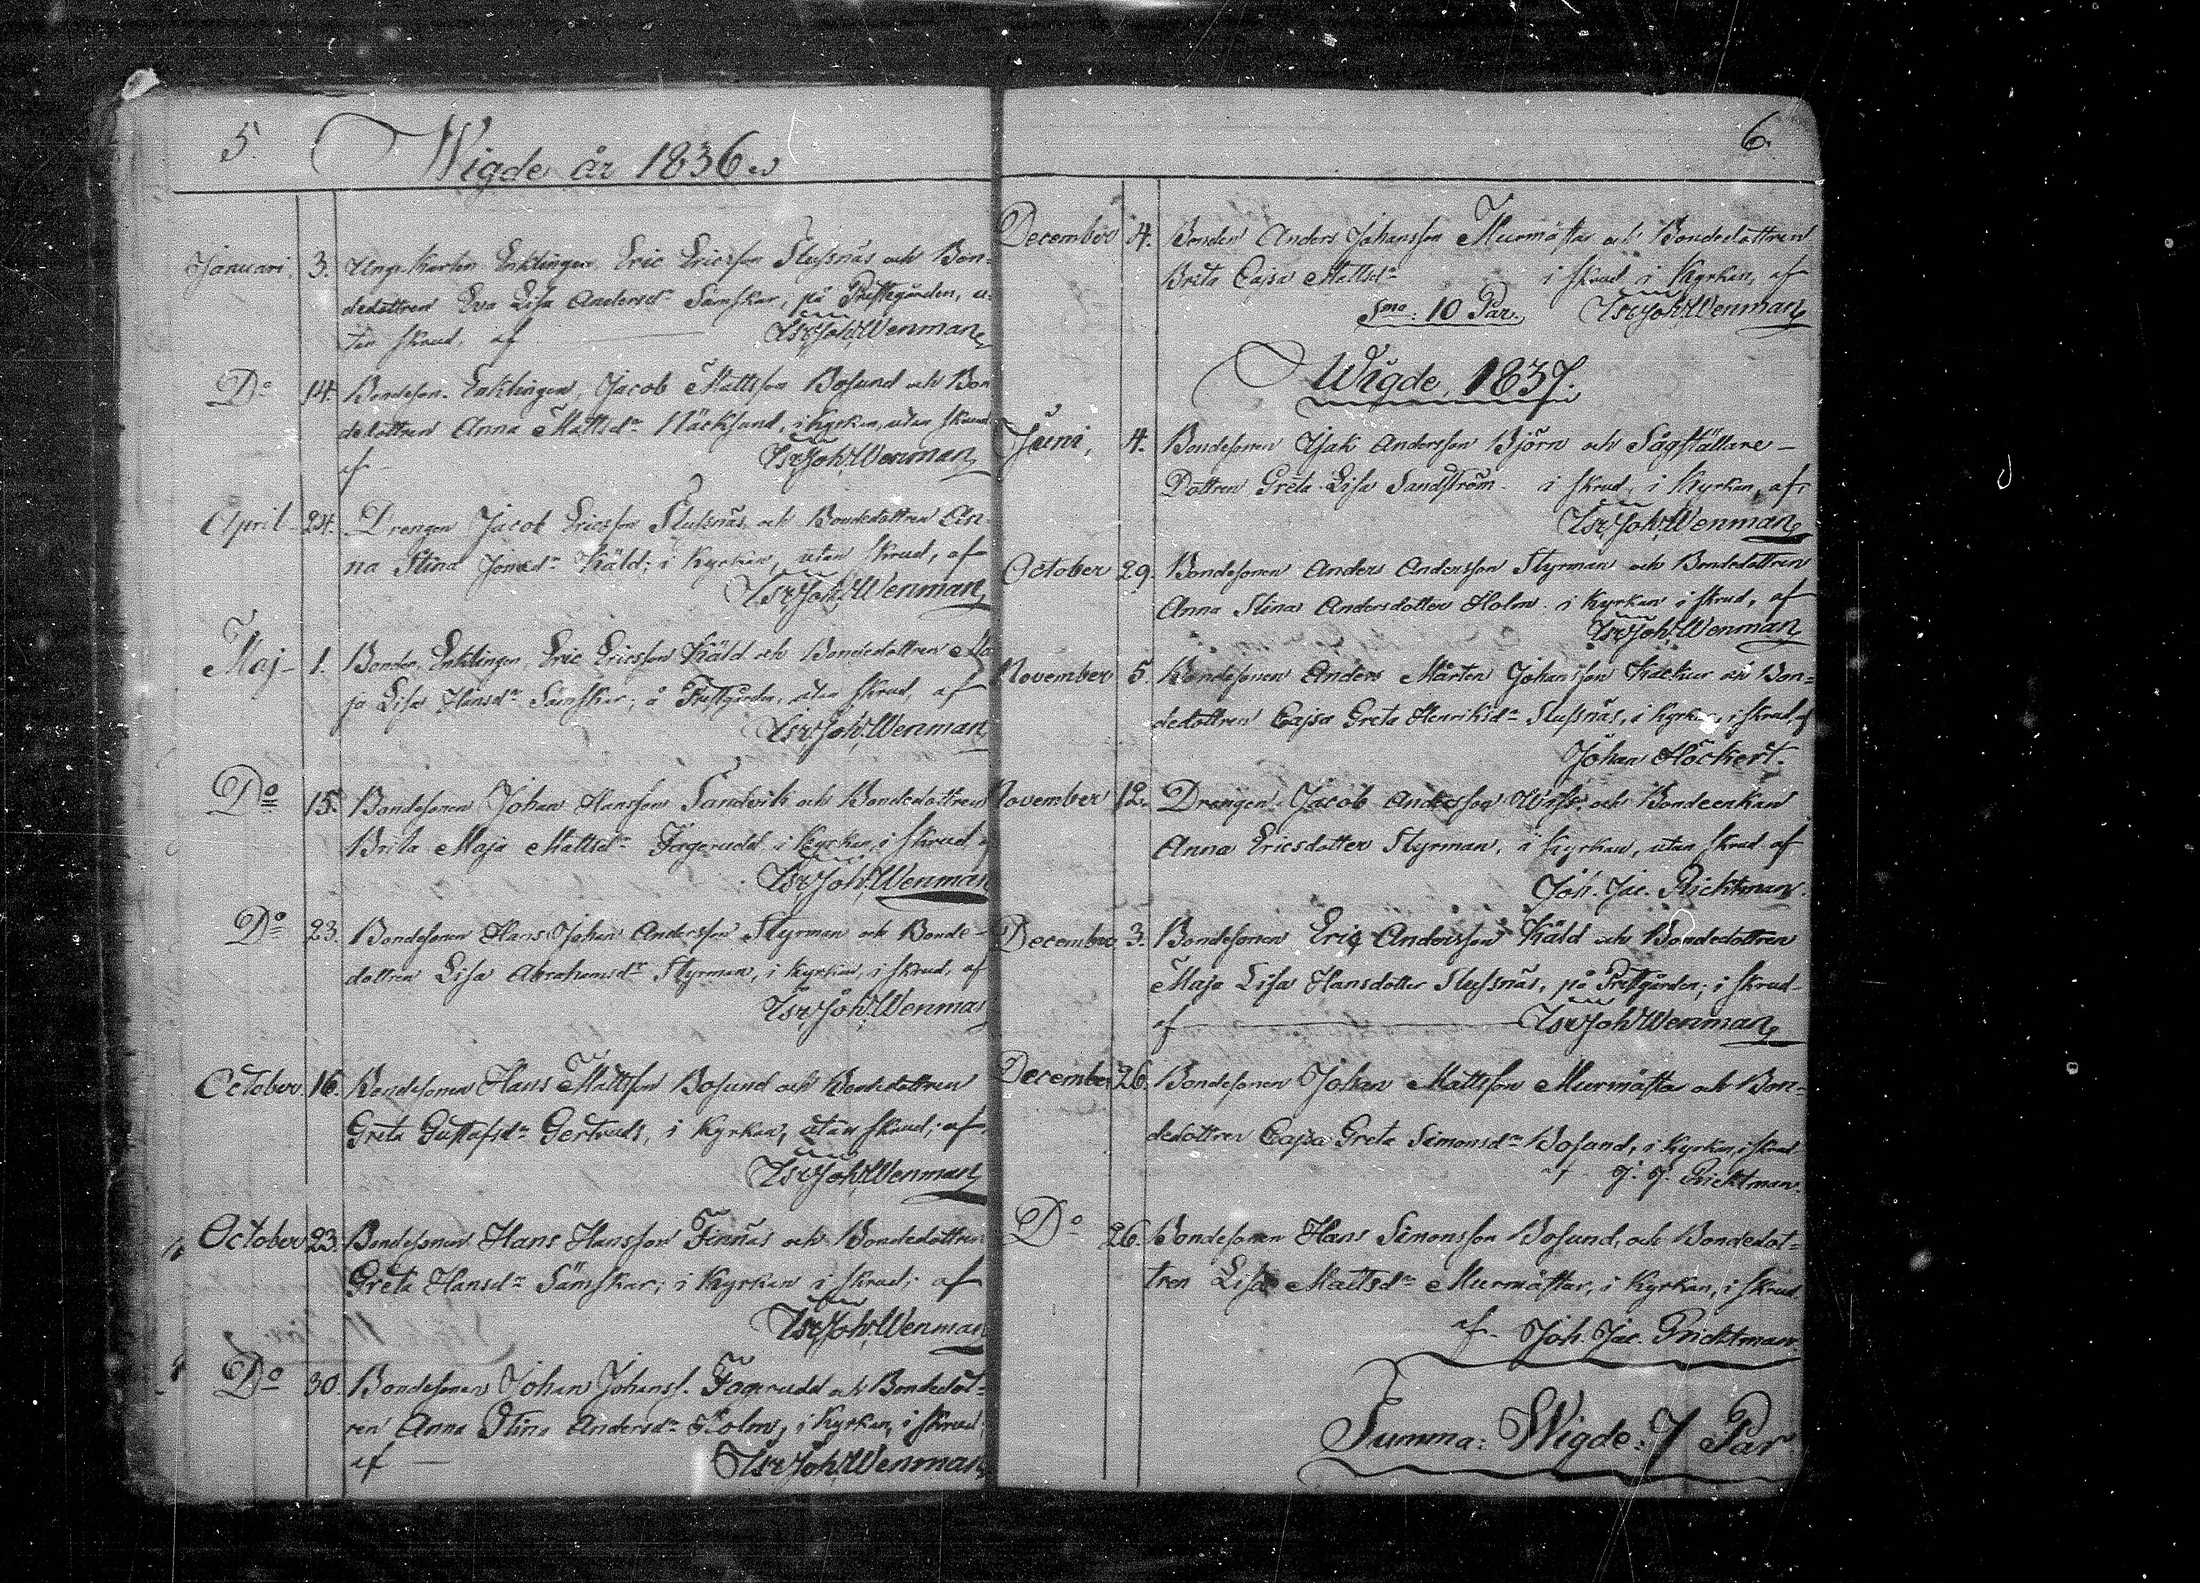 5.
Wigde år 1836.
Januari 3. Unge Karlen Enklingen Eric Ericsson Slussnäs och Bon-
dedottren Eva Lisa Andersdr Sämskar, på Prestgården, u-
tan skrud, af Isr Joh. Wenman
Do 14. Bondeson. Enklingen, Jacob Mattsson Bosund och Bon
dedottren Anna Mattsdr Näcksund, i kyrkan, utan skrud
af Isr Joh. Wenman
April 24. Drengen Jacob Ericsson Slussnäs och Bondedottren An-
na Stina Jonasdr Käld; i Kyrkan, utan skrud, af
Isr Joh. Wenman
Maj 1. Bonden, Enklingen, Eric Ericsson Käld och Bondedottren Ma
ja Lisa Hansdr Sämskar; å Prestgården, utan skrud, af
Isr Joh. Wenman
Do 15. Bondesonen Johan Hansson Sandvik och Bondedottren
Brita Maja Mattsdr Fagerudd i Kyrkan, i skrud
Isr Joh. Wenman
Do 23. Bondesonen Hans Johan Andersson Styrman och Bonde-
dottren Lisa Abrahamsdr Styrman, i kyrkan, i skrud, af
Isr Joh. Wenman
October 16. Bondesonen Hans Mattsson Bosund och Bondedottren
Greta Gustafsdr Gertruds, i kyrkan, utan skrud; af
Isr Joh. Wenman
October 23. Bondesonen Hans Hansson Finnäs och Bondedottren
Greta Hansdr Sämskar; i Kyrkan i skrud; af
Isr Joh. Wenman
Do 30. Bondesonen Johan Johanss. Fagerudd och Bondedot-
ren Anna Stina Andersdr Holm, i Kyrkan, i skrud,
af Isr Joh. Wenman
6.
December 4. Bonden Anders Johansson Murmästar och Bondedottren
Brita Cajsa Mattsdr i skrud i Kyrkan, af
Sma: 10 Par. Isr Joh. Wenman
Wigde, 1837.
Juni, 4. Bondesonen Isak Andersson Björn och Sågställare-
Dottren Greta Lisa Sandström i skrud, i Kyrkan, af
Isr Joh. Wenman
October 29. Bondesonen Anders Andersson Styrman och Bondedottren
Anna Stina Andersdotter Holm i kyrkan i skrud, af
Isr Joh. Wenman
November 5. Bondesonen Anders Mårten Johansson Kackur och Bon=
dedottren Cajsa Greta Henriksdr Slussnäs, i kyrkan, i skrud, af
Johan Höckert.
November 12. Drengen Jacob Andersson och Bondeenkan
Anna Ericsdotter Styrman, i kyrkan, utan skrud af
Joh. Jac. Ricktman.
December 3. Bondesonen Eric Andersson Käld och Bondedottren
Maja Lisa Hansdotter Slussnäs, på Prestgården; i skrud
af Isr Joh. Wenman
December 26. Bondesonen Johan Mattsson Murmästar och Bon=
dedottren Cajsa Greta Simonsdr Bosund, i kyrkan, i skrud
af J. J. Ricktman.
Do 26. Bondesonen Hans Simonsson Bosund, och Bondedot=
tren Lisa Mattsdr Murmästar, i kyrkan, i skrud
af Joh. Jac. Ricktman.
Summa: Wigde: 7 Par